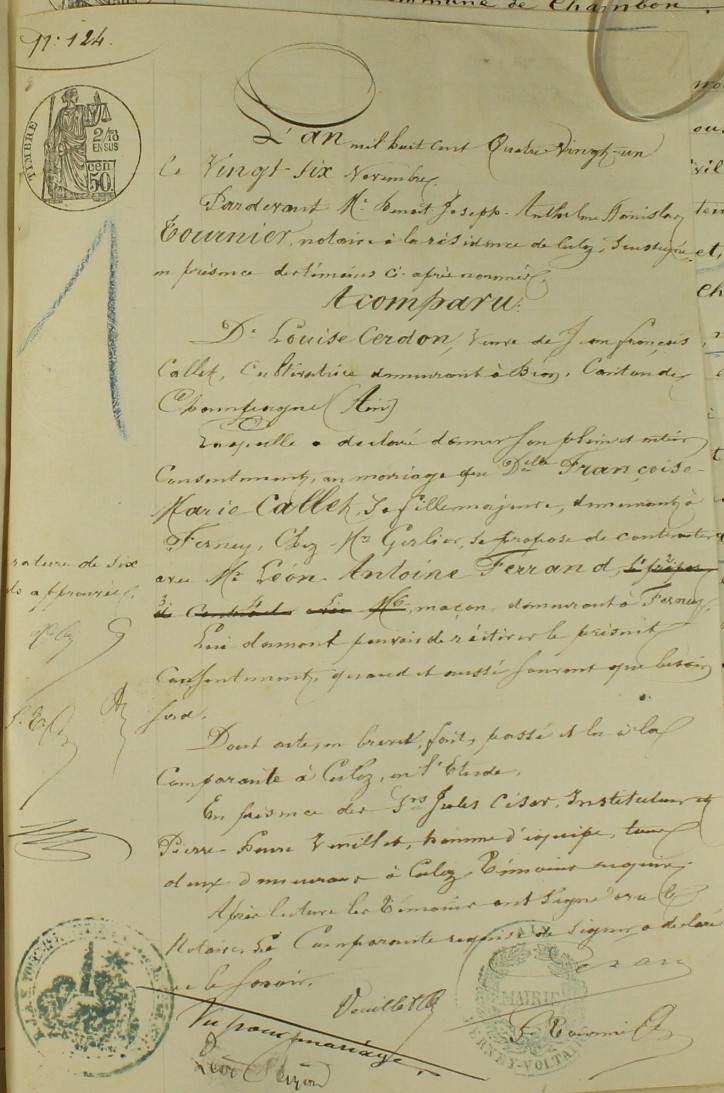 commune de Chambon.
N°. 124.
TIMBRE
2/10
EN SUS
50.
L'an mil huit cent Quatre Vingt-un
Le Vingt-six Novembre.
Pardevant Me Benoit Joseph-Anthelme Stanislas
Tournier, notaire à la résidence de Culoz, soussigné.
en présence des témoins ci-après nommés,
A comparu:
De Louise Cerdon, veuve de Jean françois
Callet, Cultivatrice demeurant à Béon, Canton de
Champagne (Ain)
Laquelle a déclaré donner son plein et entier
Consentement, au mariage que Delle Françoise-
Marie Callet, Sa fille majeure, demeurant à
Ferney, Chez Mr Gerlier, se propose de contracter
avec Mr Léon-Antoine Ferrand,
maçon, demeurant à Ferney,
rature de six
approuvée.
Lui donnant pouvoir de réitérer le présent
Consentement, quand et aussi souvent que besoin
sera.
Dont acte, en brevet, fait, passé et lu à la
Comparante à Culoz, en l'Etude,
En présence des Srs Jules César, Instituteur et
Pierre- Vuillet, homme d'équipe, tous
deux demeurant à Culoz, Témoins requis.
Après lecture les témoins ont signé avec le
Notaire, La Comparante requise de signer a déclaré
ne le savoir.
Vuillet
MAIRIE
FERNEY-VOLTAIRE
Vu pour mariage.